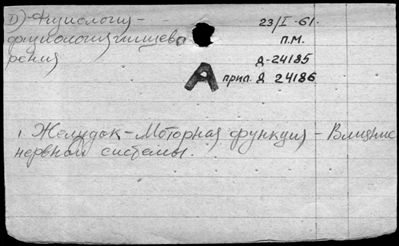 D) Физиология -
физиология пищева-
рения
23/I-61.
П.М.
Д-24185
А
прил. Д 24186
1. Желудок - Моторная функция - Влияние
нервной системы.